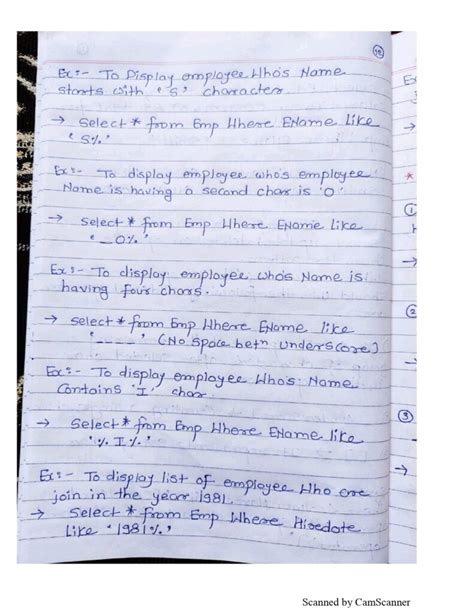 12
Ex:- To Display employee Who's Name
starts with 'S' character
→ Select * from Emp Where EName like
'S%'
Ex:- To display employee who's employee
Name is having a second char is 'O'
→ Select * from Emp Where EName like
'_O%'
Ex:- To display employee who's Name is
having four chars.
→ select * from Emp Where EName like
'____' (No space betn underscore)
Ex:- To display employee Who's Name
Contains 'I' char
→ Select * from Emp Where EName like
'%I%'
Ex:- To display list of employee Who are
join in the year 1981.
→ Select * from Emp Where Hiredate
Like '1981%'
Scanned by CamScanner